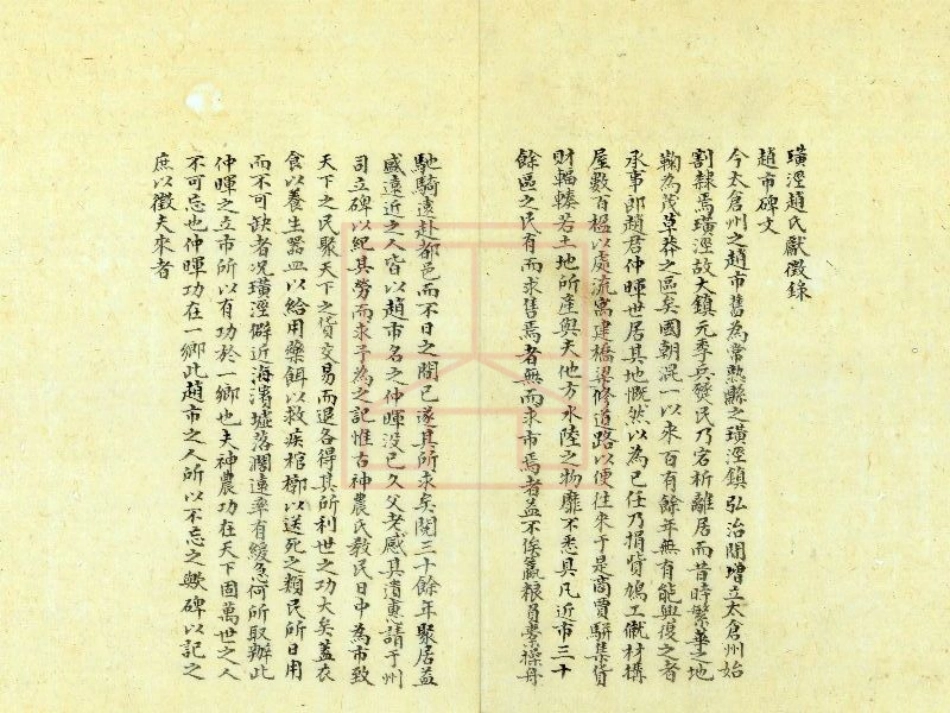 璜涇趙氏獻徵錄
趙市碑文
今太倉州之趙市舊為常熟縣之璜涇鎮弘治間增立太倉州始
割隸焉璜涇故大鎮元季兵燹民乃宕析離居而昔時繁華之地
鞠為茂草莽之區矣國朝混一以來百有餘年無有能興復之者
承事郎趙君仲暉世居其地慨然以為己任乃捐貲鳩工僦材搆
屋數百楹以處流寓建橋梁修道路以便往來于是商賈駢集貨
財輻輳若土地所產與夫他方水陸之物靡不悉具凡近市三十
餘區之民有而求售焉者無而求市焉者蓋不俟贏粮負橐操舟
馳騎遠赴都邑而不日之間已遂其所求矣閱三十餘年聚居益
盛遠近之人皆以趙市名之仲暉沒已久父老感其遺惠請于州
司立碑以紀其勞而求予為之記惟古神農氏教民日中為市致
天下之民聚天下之貨交易而退各得其所利世之功大矣蓋衣
食以養生器皿以給用藥餌以救疾棺槨以送死之類民所日用
而不可缺者况璜涇僻近海濱墟落濶遠率有緩急何所取辦此
仲暉之立市所以有功於一鄉也夫神農功在天下固萬世之人
不可忘也仲暉功在一鄉此趙市之人所以不忘之歟碑以記之
庶以徵夫來者